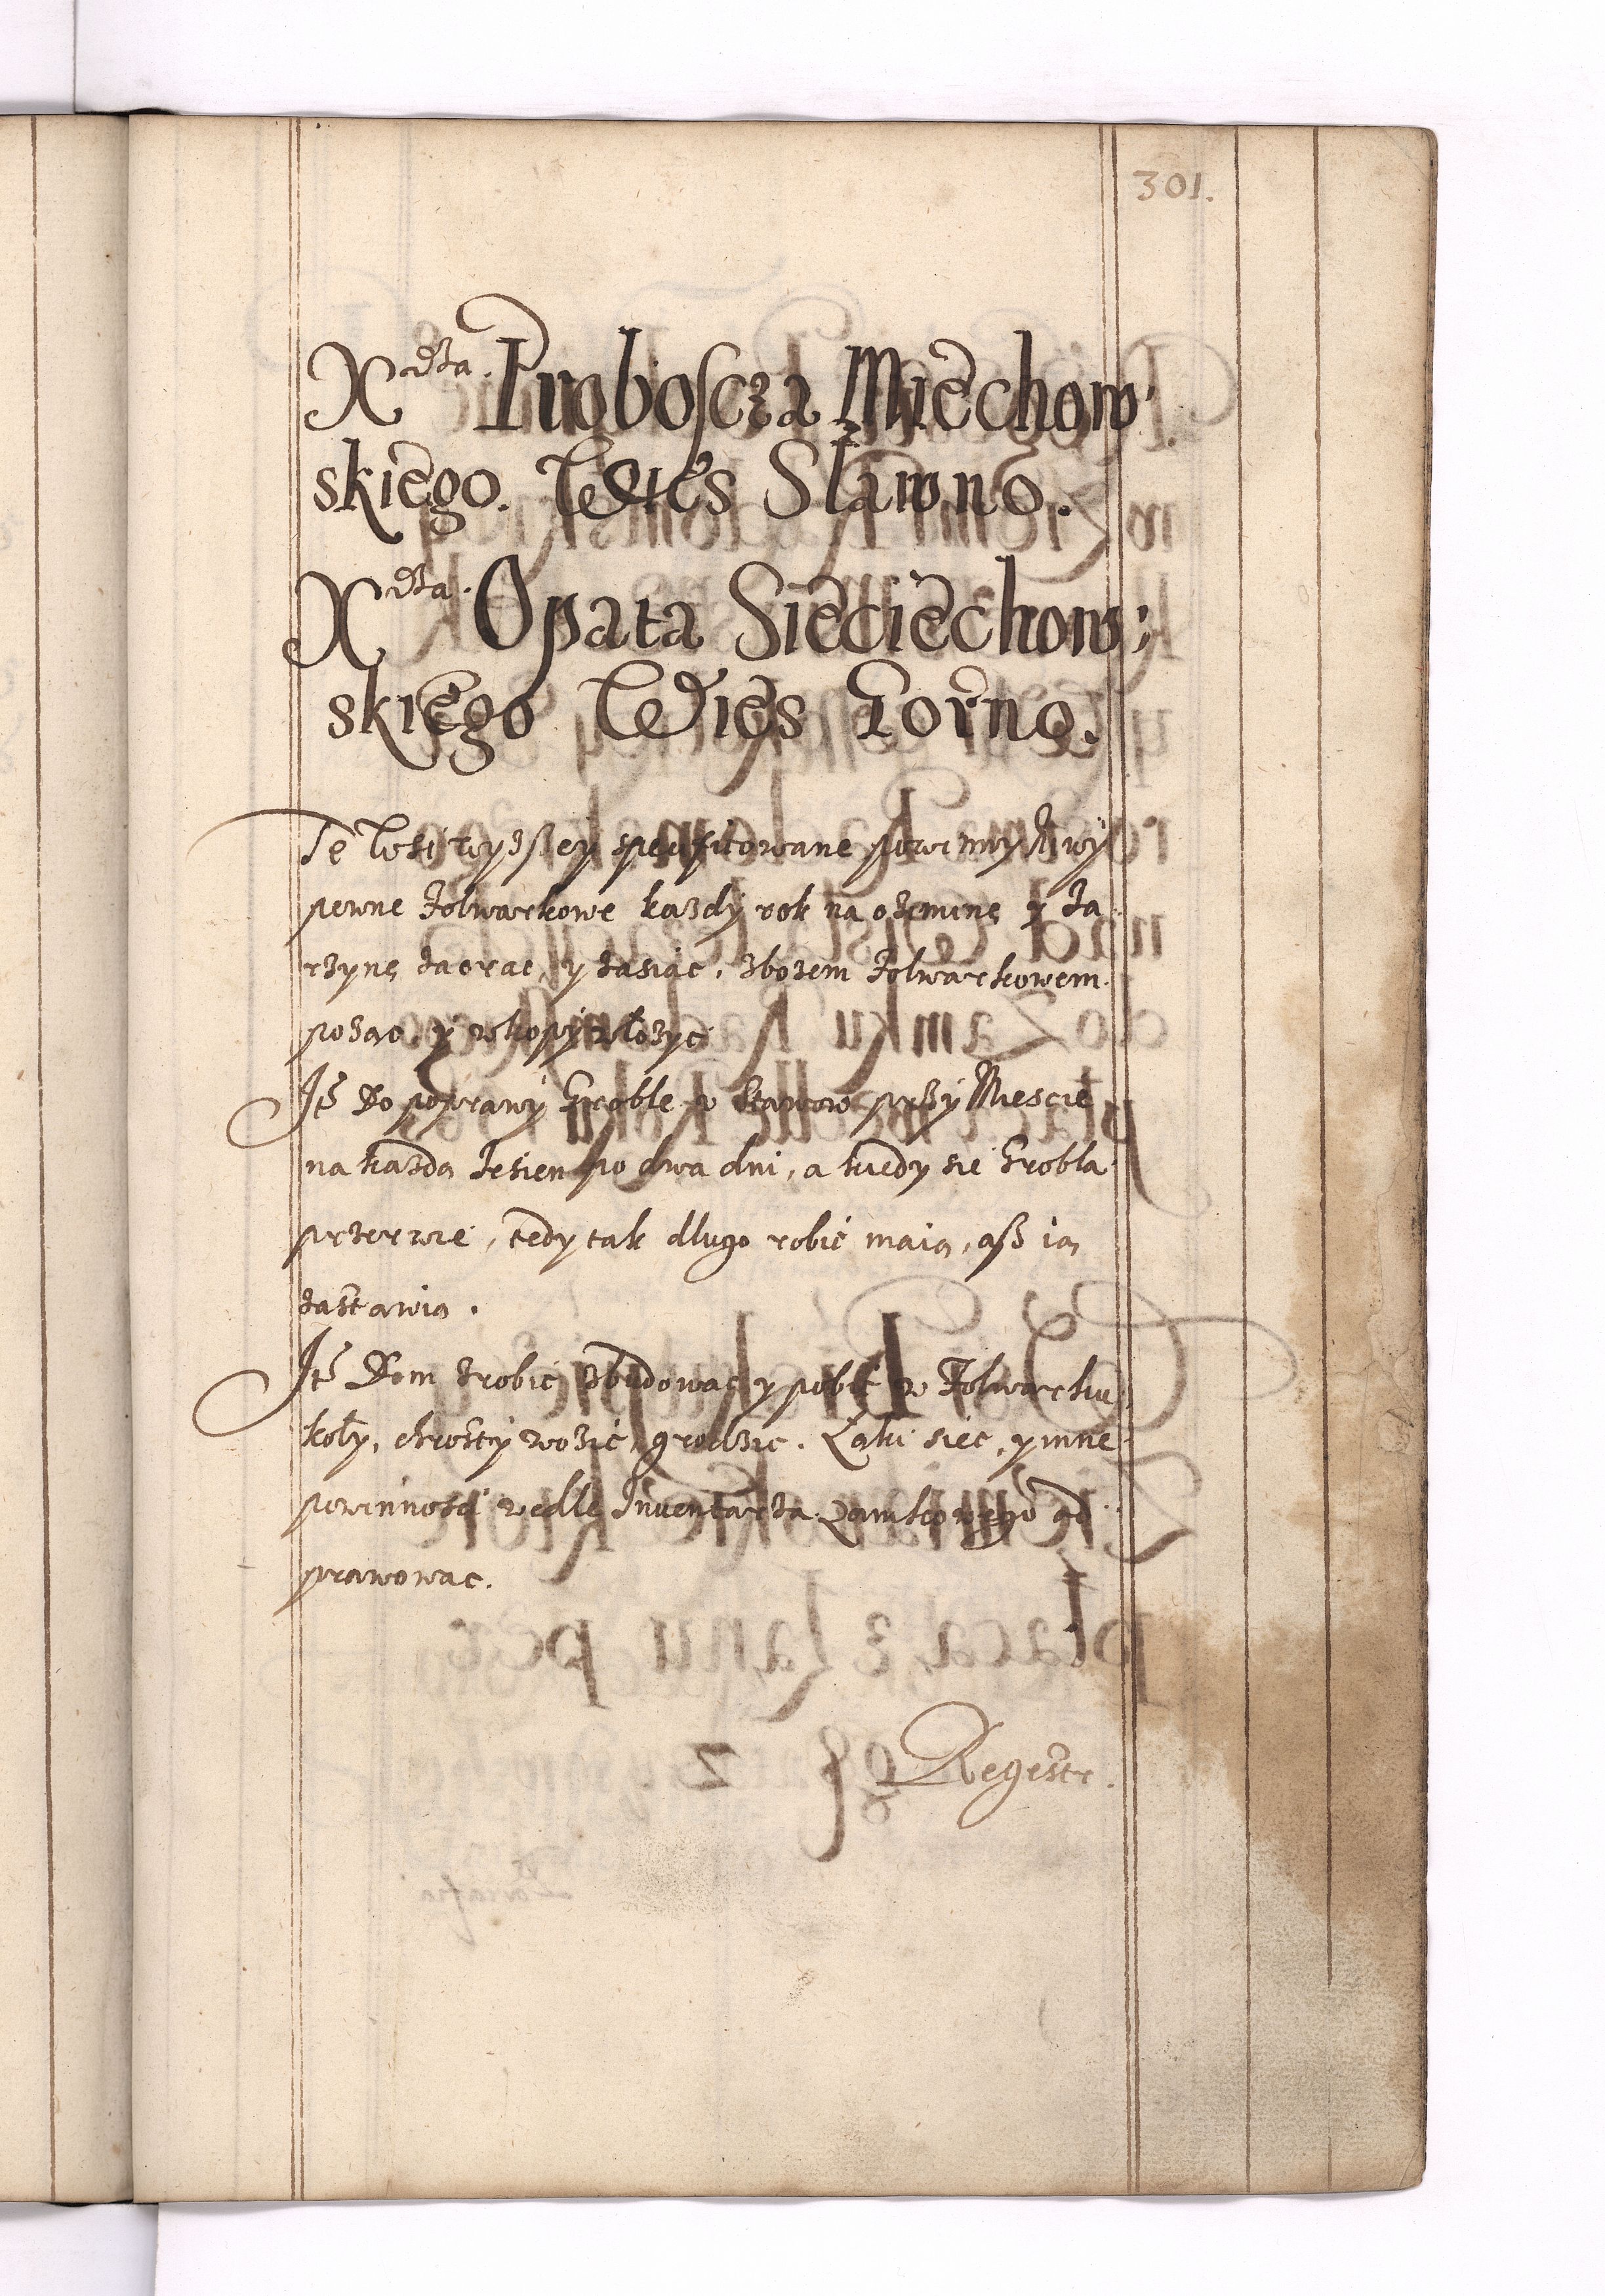 301.
Xdza. Proboscza Miechow-
skiego. Wies Sławno.
Xdza. Opata Sieciechow:
skiego Wies Gorno.
Te Wsi wyzßey specifitowane powinny Niwy
pewne folwarkowe kazdy rok na ozimine y Ja
rzynę zaorac, y zasiac. zbozem folwarkowem.
pozac y w kopy włozyc
Ite Do poprawy Groble v Stawow przy Miescie
na kazdą Jesien po dwa dni, a kiedy sie Grobla
przerwie, tedy tak dlugo robic maią, aß ią
zastawią.
Ite Dom zrobic zbudowac y pobic w Folwarku
koły, chrosty wozic, grodzic. Łąki siec, y inne
powinnosci wedle Inventarza Zamkowego od
prawowac.
Regestr.